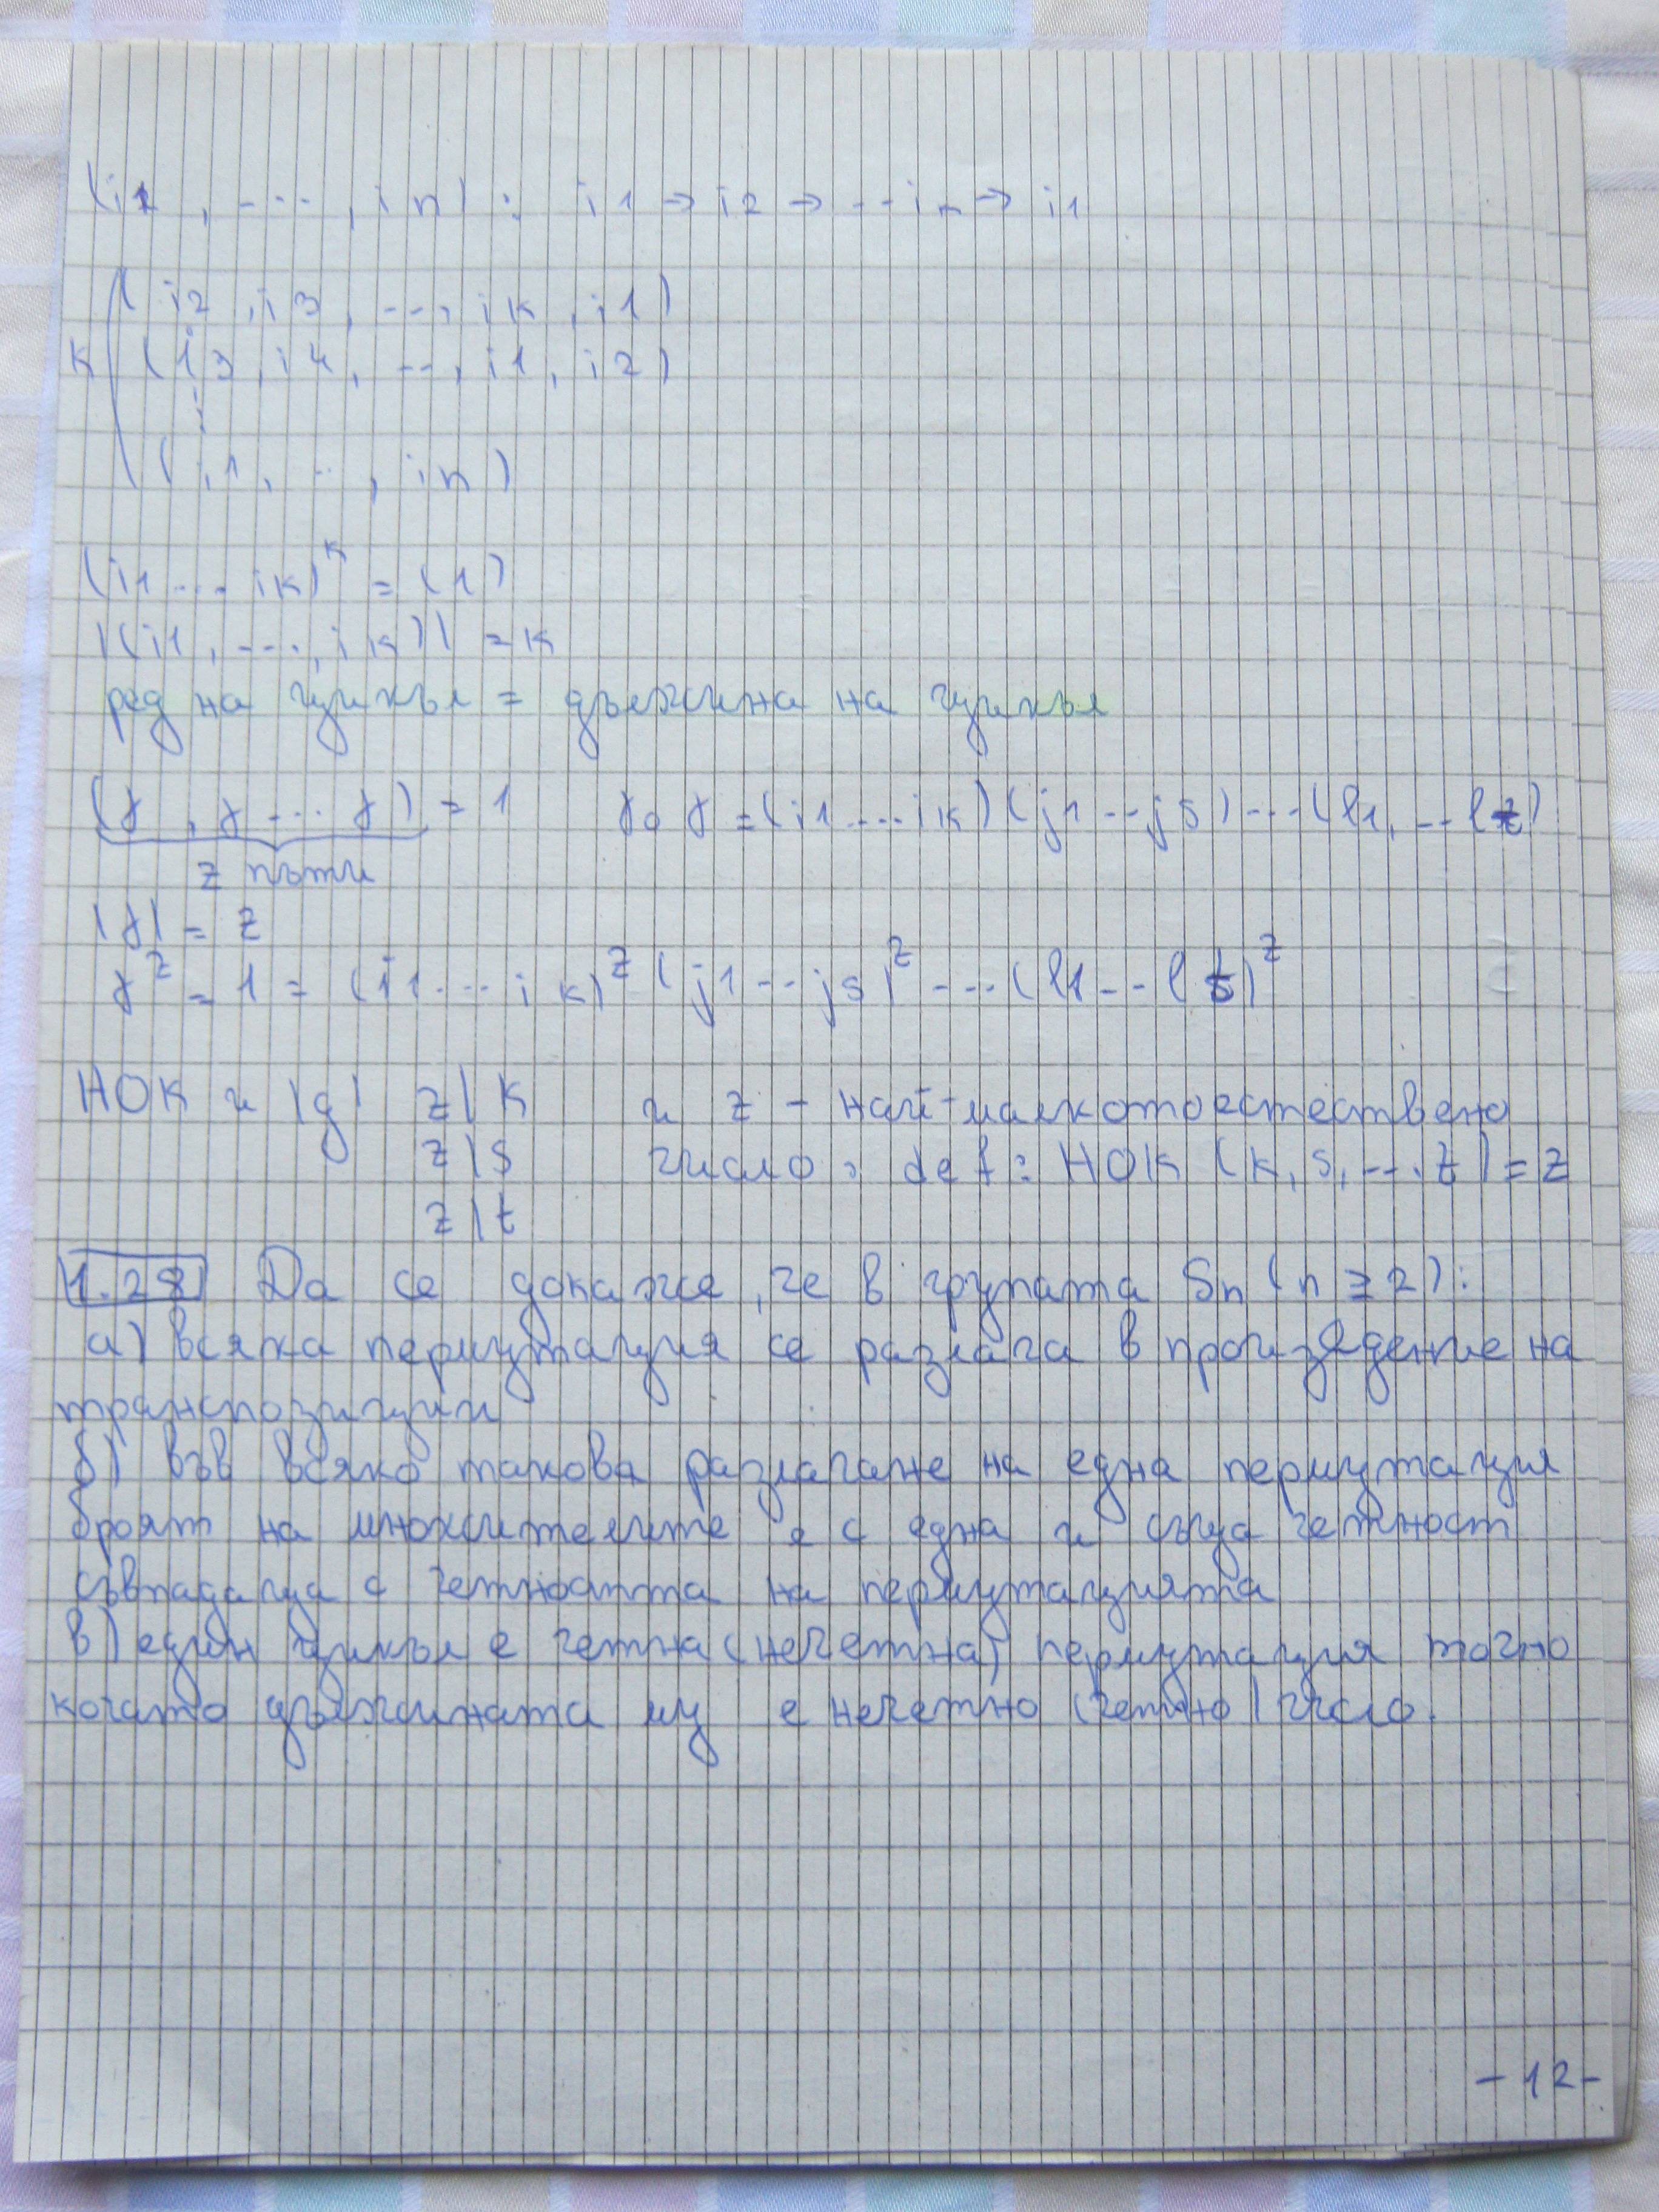 (i1 , ... , in) : i1 → i2 → ... in → i1
( i2 , i3 , ..., ik , i1 )
k ( i3 , i4 , ..., i1 , i2 )
⋮
( i1 , ... , in )
(i1 ... ik)^k = (1)
|(i1 , ..., ik)| = k
ред на цикъл = дължина на цикъл
(γ , γ ... γ) = 1   γ∘γ = (i1 ... ik) (j1 ... js) ... (l1, ... lt)
z пъти
|γ| = z
γ^z = 1 = (i1 ... ik)^z (j1 ... js)^z ... (l1 ... lt)^z
НОК и |g| z | k и z - най-малкото естествено
z | s число, def: НОК (k, s, ..., t) = z
z | t
1.28 Да се докаже, че в групата Sn (n ≥ 2):
а) всяка пермутация се разлага в произведение на
транспозиции
б) във всяко такова разлагане на една пермутация
броят на множителите е с една и съща четност
съвпадаща с четността на пермутацията
в) един цикъл е четна (нечетна) пермутация точно
когато дължината му е нечетно (четно) число.
- 12 -